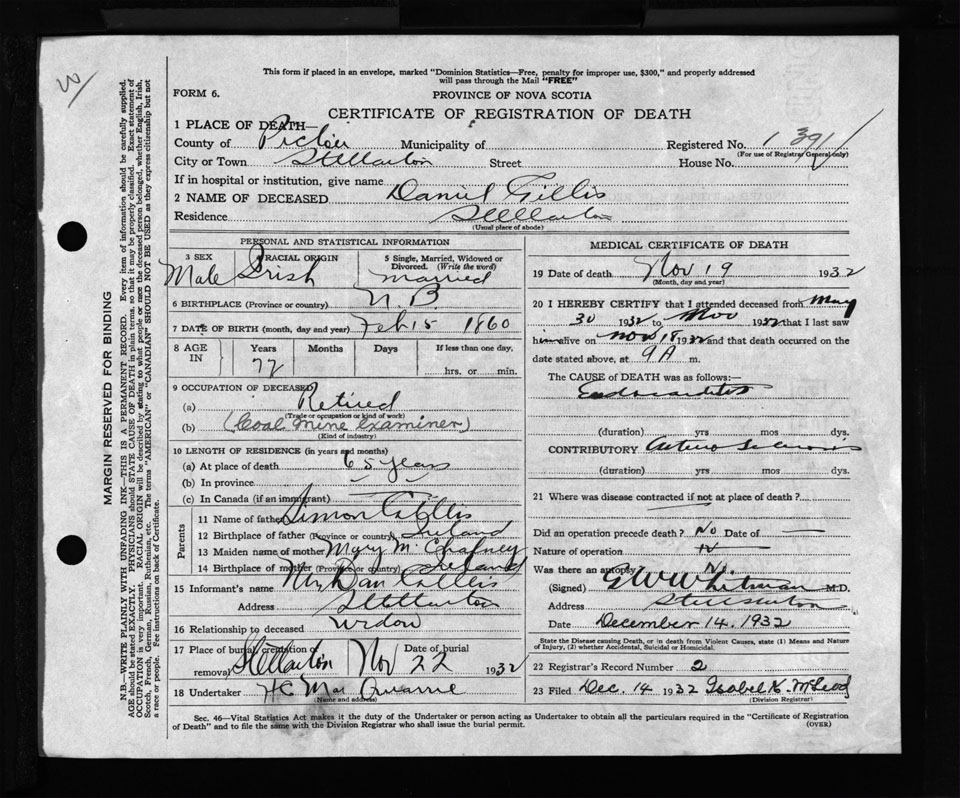 This form if placed in an envelope, marked "Dominion Statistics—Free, penalty for improper use, $300," and properly addressed
will pass through the Mail "FREE"
FORM 6.
PROVINCE OF NOVA SCOTIA
CERTIFICATE OF REGISTRATION OF DEATH
1 PLACE OF DEATH—
County of Pictou Municipality of Registered No. 1391
(For use of Registrar General only)
City or Town Stellarton Street House No.
If in hospital or institution, give name
2 NAME OF DECEASED Daniel Gillis
Residence Stellarton
(Usual place of abode)
PERSONAL AND STATISTICAL INFORMATION
3 SEX RACIAL ORIGIN 5 Single, Married, Widowed or Divorced. (Write the word)
Male Irish Married
6 BIRTHPLACE (Province or country) N.B.
7 DATE OF BIRTH (month, day and year) Feb 15 1860
8 AGE IN Years Months Days If less than one day,
72 hrs. or min.
9 OCCUPATION OF DECEASED
(a) Retired
(Trade or occupation or kind of work)
(b) (Coal Mine Examiner)
(Kind of industry)
10 LENGTH OF RESIDENCE (in years and months)
(a) At place of death 65 years
(b) In province
(c) In Canada (if an immigrant)
Parents
11 Name of father Simon Gillis
12 Birthplace of father (Province or country) Ireland
13 Maiden name of mother Mary M.
14 Birthplace of mother (Province or country) Ireland
15 Informant's name Mrs Dan Gillis
Address Stellarton
16 Relationship to deceased widow
17 Place of burial, cremation or removal Stellarton Date of burial Nov 22 1932
18 Undertaker H C Mac
(Name and address)
MEDICAL CERTIFICATE OF DEATH
19 Date of death Nov 19 1932
(Month, day and year)
20 I HEREBY CERTIFY that I attended deceased from May
30 1932 to Nov 1932 that I last saw
him alive on Nov 18 1932 and that death occurred on the
date stated above, at 9 A m.
The CAUSE of DEATH was as follows:—
Endocarditis
(duration) yrs mos dys.
CONTRIBUTORY Arterio Sclerosis
(duration) yrs mos dys.
21 Where was disease contracted if not at place of death?
Did an operation precede death? No Date of —
Nature of operation
Was there an autopsy No
(Signed) G W Whitman M.D.
Address Stellarton
Date December 14, 1932
State the Disease causing Death, or in death from Violent Causes, state (1) Means and Nature of Injury, (2) whether Accidental, Suicidal or Homicidal.
22 Registrar's Record Number 2
23 Filed Dec. 14 1932 Isobel K. McLeod
(Division Registrar)
Sec. 46—Vital Statistics Act makes it the duty of the Undertaker or person acting as Undertaker to obtain all the particulars required in the "Certificate of Registration
of Death" and to file the same with the Division Registrar who shall issue the burial permit.
(OVER)
MARGIN RESERVED FOR BINDING
N.B.—WRITE PLAINLY WITH UNFADING INK—THIS IS A PERMANENT RECORD. Every item of information should be carefully supplied.
AGE should be stated EXACTLY. PHYSICIANS should STATE CAUSE OF DEATH in plain terms, so that it may be properly classified. Exact statement of
OCCUPATION is very important. RACIAL ORIGIN will be described by stating to what people or race the deceased person belonged, whether English, Irish,
Scotch, French, German, Russian, Ruthenian, etc. The terms "AMERICAN" or "CANADIAN" SHOULD NOT BE USED as they express citizenship but not
a race or people. Fee instructions on back of Certificate.